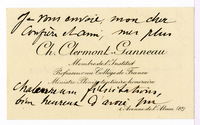 Je vous envoie, mon cher
Confrère et ami, mes plus
Ch. Clermont-Ganneau
Membre de l'Institut
Professeur au Collège de France
Ministre Plénipotentiaire honoraire
chaleureuses félicitations,
bien heureux d'avoir pu
1, Avenue de l'Alma